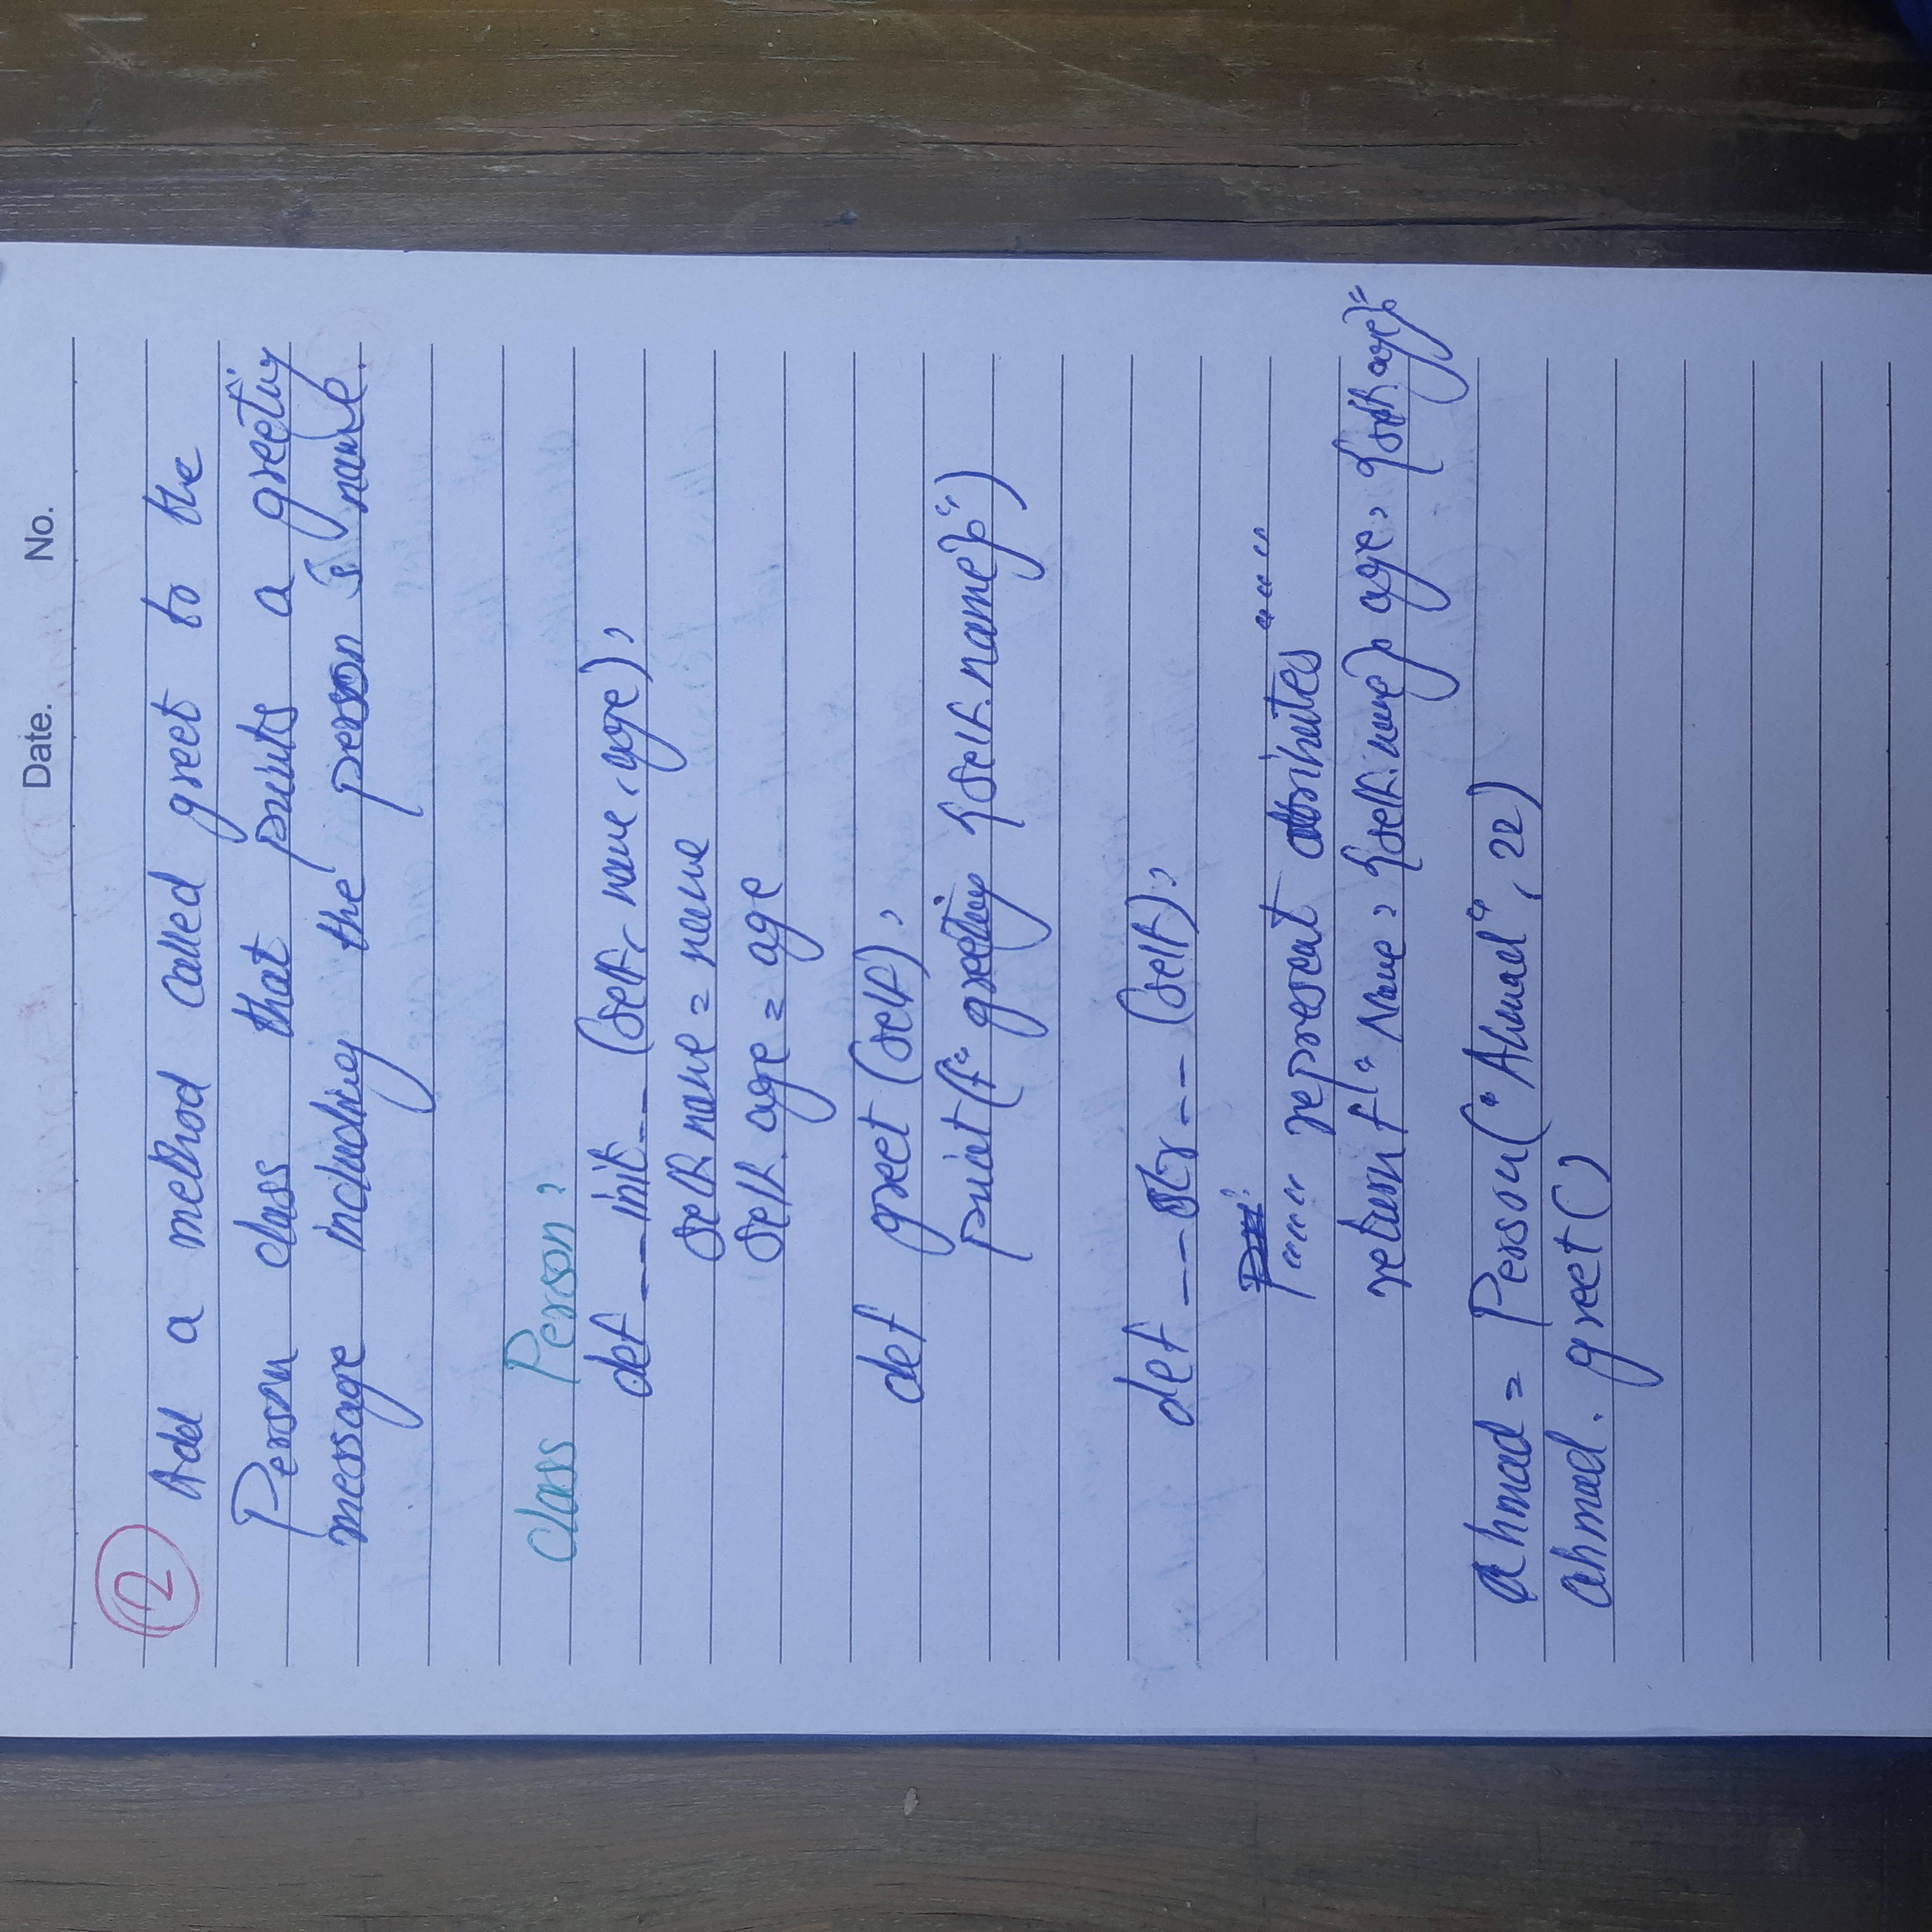 Date. No.
2
Add a method called greet to the
Person class that prints a greeting
message including the person's name.
class Person:
def __init__ (self, name, age):
self.name = name
self.age = age
def greet (self):
print(f"greeting {self.name}")
def __str__ (self):
"""" represent attributes """
return f "Name: {self.name} age: {self.age}"
ahmad = Person("Ahmad", 22)
ahmad. greet()